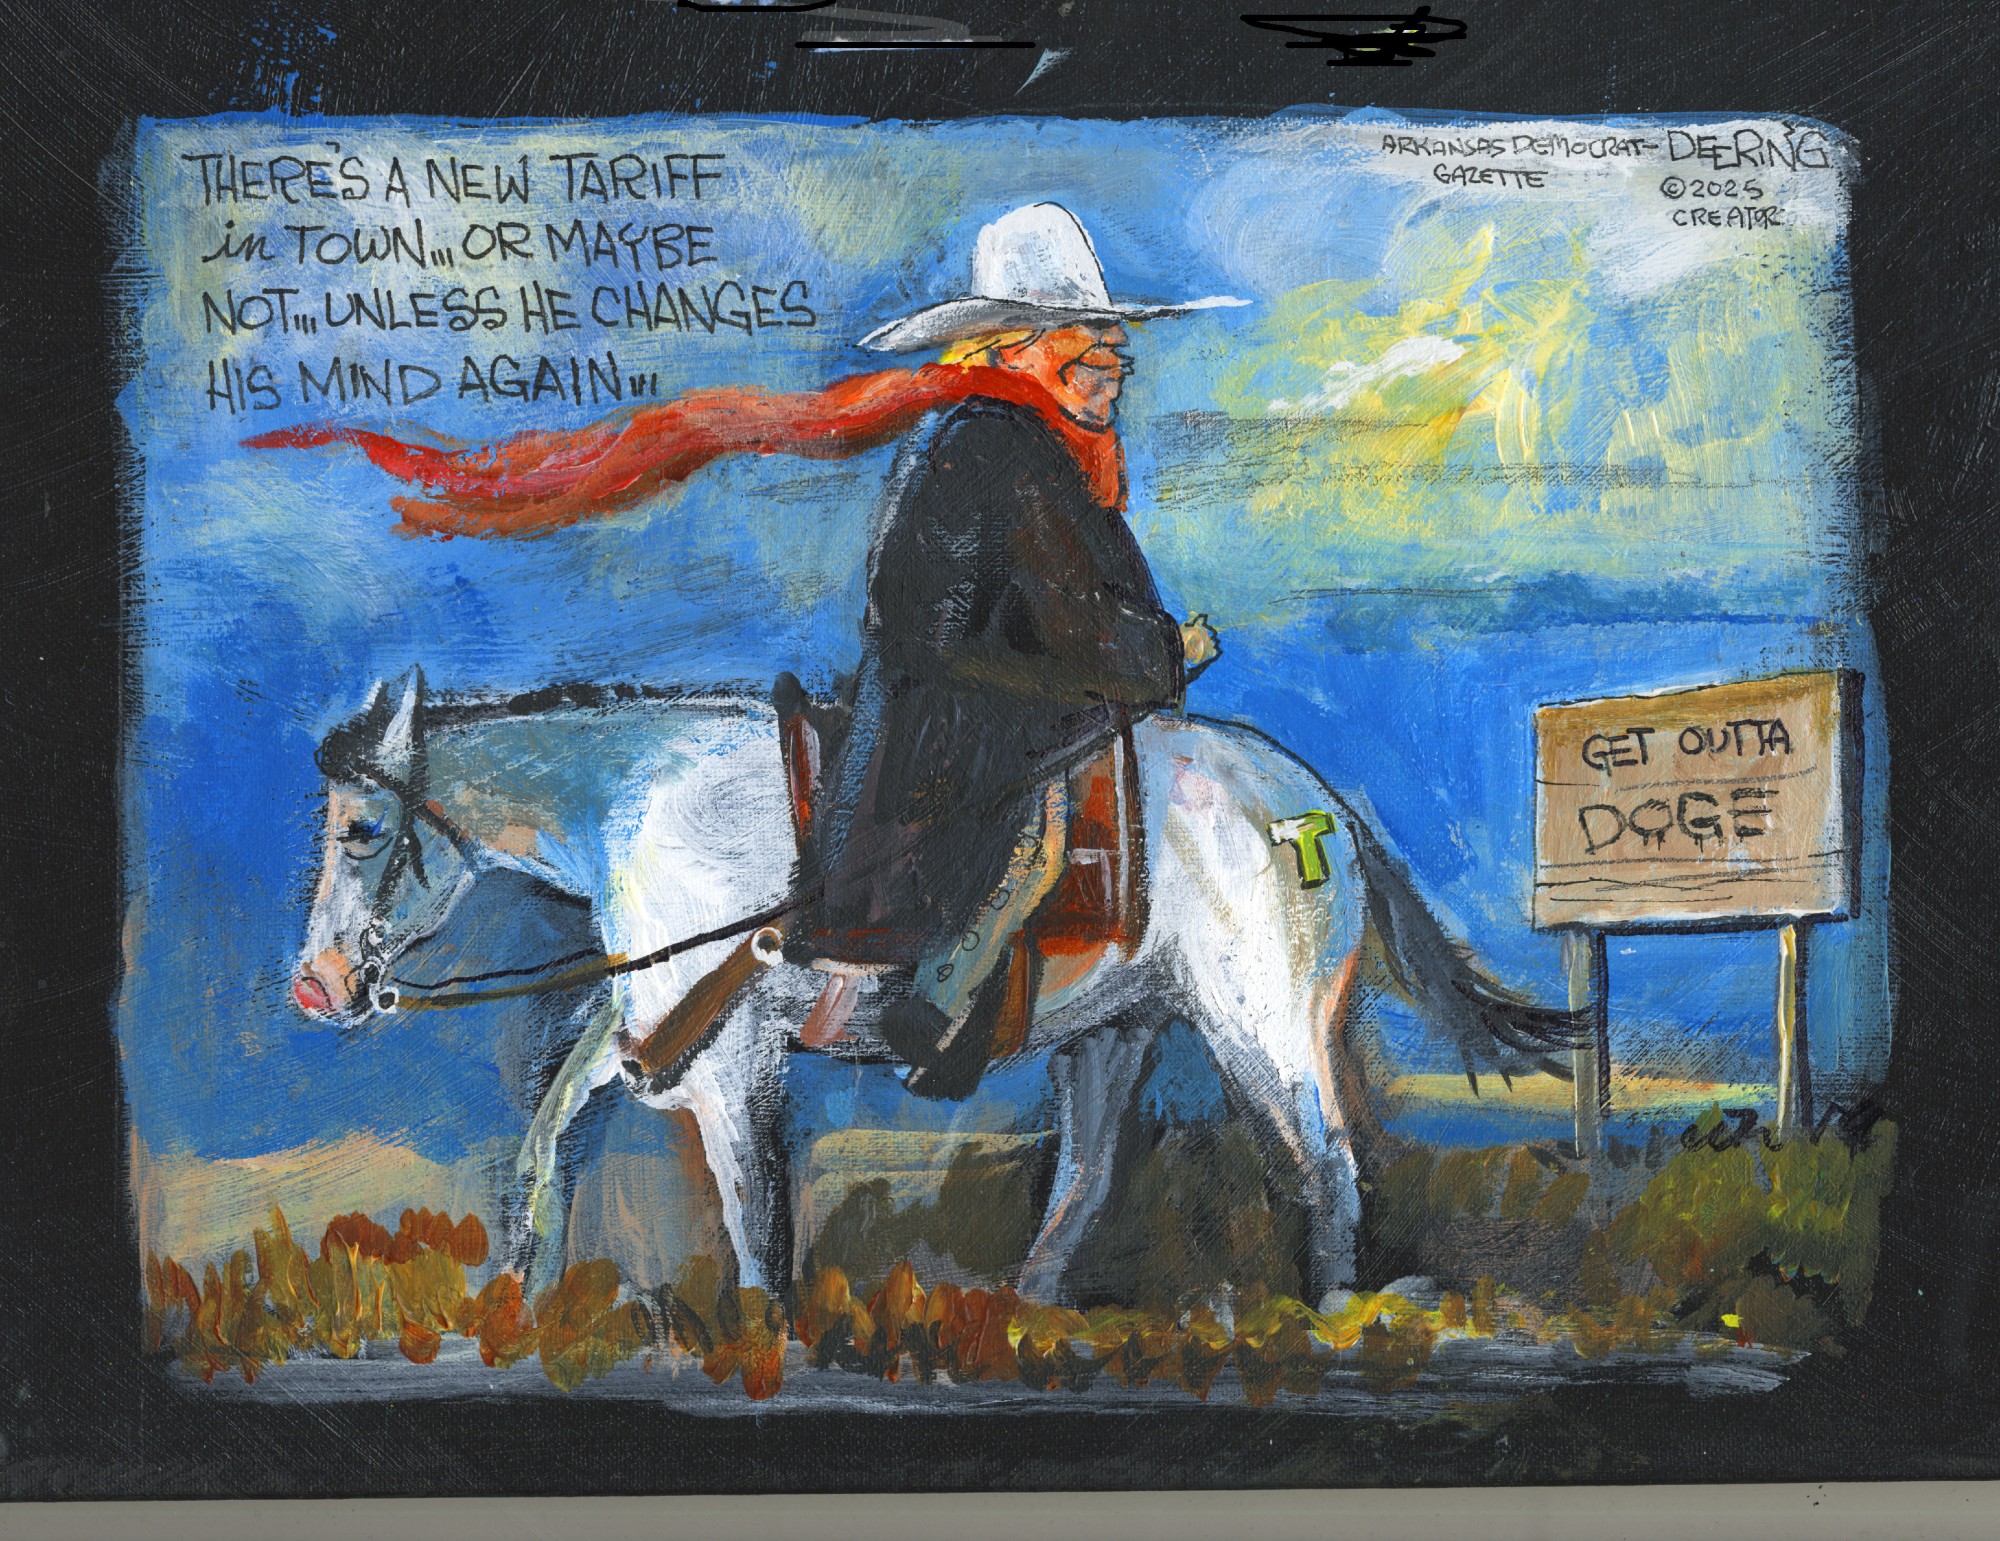 THERE'S A NEW TARIFF
in TOWN... OR MAYBE
NOT... UNLESS HE CHANGES
HIS MIND AGAIN...
ARKANSAS DEMOCRAT- DEERING
GAZETTE
©2025
CREATORS
T
GET OUTTA
DOGE